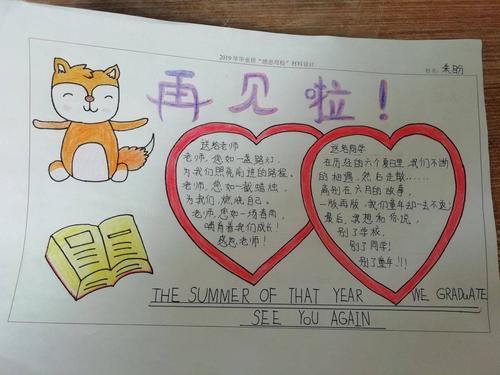 2019年毕业班“感恩母校”材料设计
姓名：朱盼
再见啦！
送给老师
老师,您如一盏路灯,
为我们照亮前进的路程。
老师,您如一截蜡烛,
为我们,燃烧自己。
老师,您如一场春雨,
哺育着我们成长!
感恩老师!
送给同学
在历经的六个夏日里,我们不断
的相遇,然后走散……
离别在六月的故事,
一版再版,我们童年却一去不返!
最后,我想和你说,
别了学校,
别了同学!
别了童年!!!
THE SUMMER OF THAT YEAR WE GRADUATE
SEE YOU AGAIN